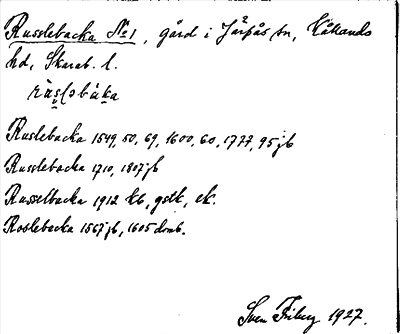 Russlebacka No 1, gård i Järpås sn, Kållands
hd, Skarab. l.
Ruslebacka 1549, 50, 69, 1600, 60, 1777, 95 jb
Russlebacka 1710, 1807 jb
Russelbacka 1912 kb, gstk, ek.
Roslebacka 1567 jb, 1605 domb.
Sven Friberg 1927.